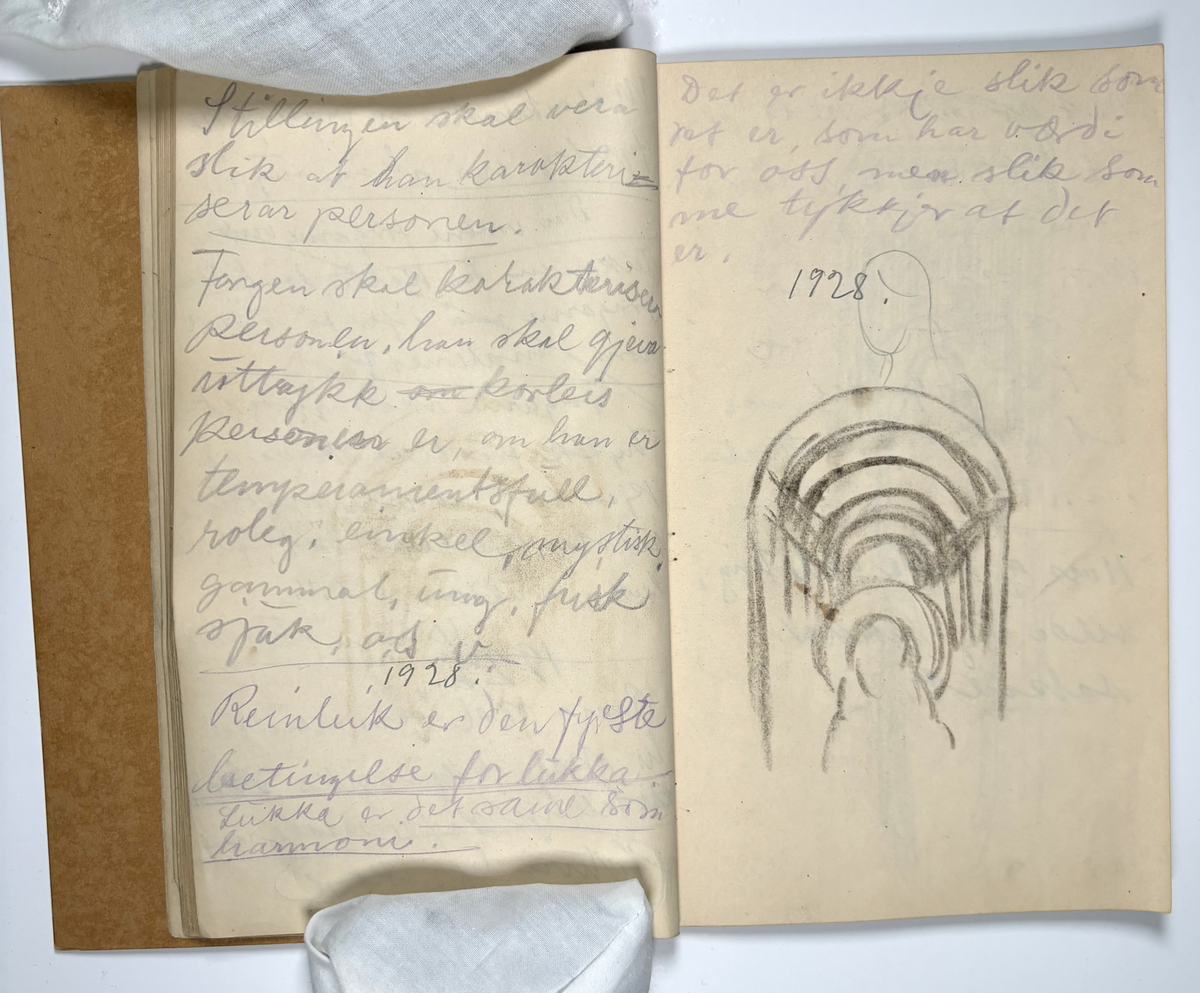 Stillingen skal vera
slik at han karakteri-
serar personen.
Fargen skal karakterisera
personen, han skal gjeva
uttrykk om korleis
personen er, om han er
temperamentsfull,
roleg, einkel, mystisk,
gammal, ung, frisk
sjuk, o.s.v.
1928.
Reinleik er den fyrste
betingelse for lukka
Lukka er det same som
harmoni.
Det er ikkje slik som
det er, som har værdi
for oss men slik som
me tykkjer at det
er.
1928.